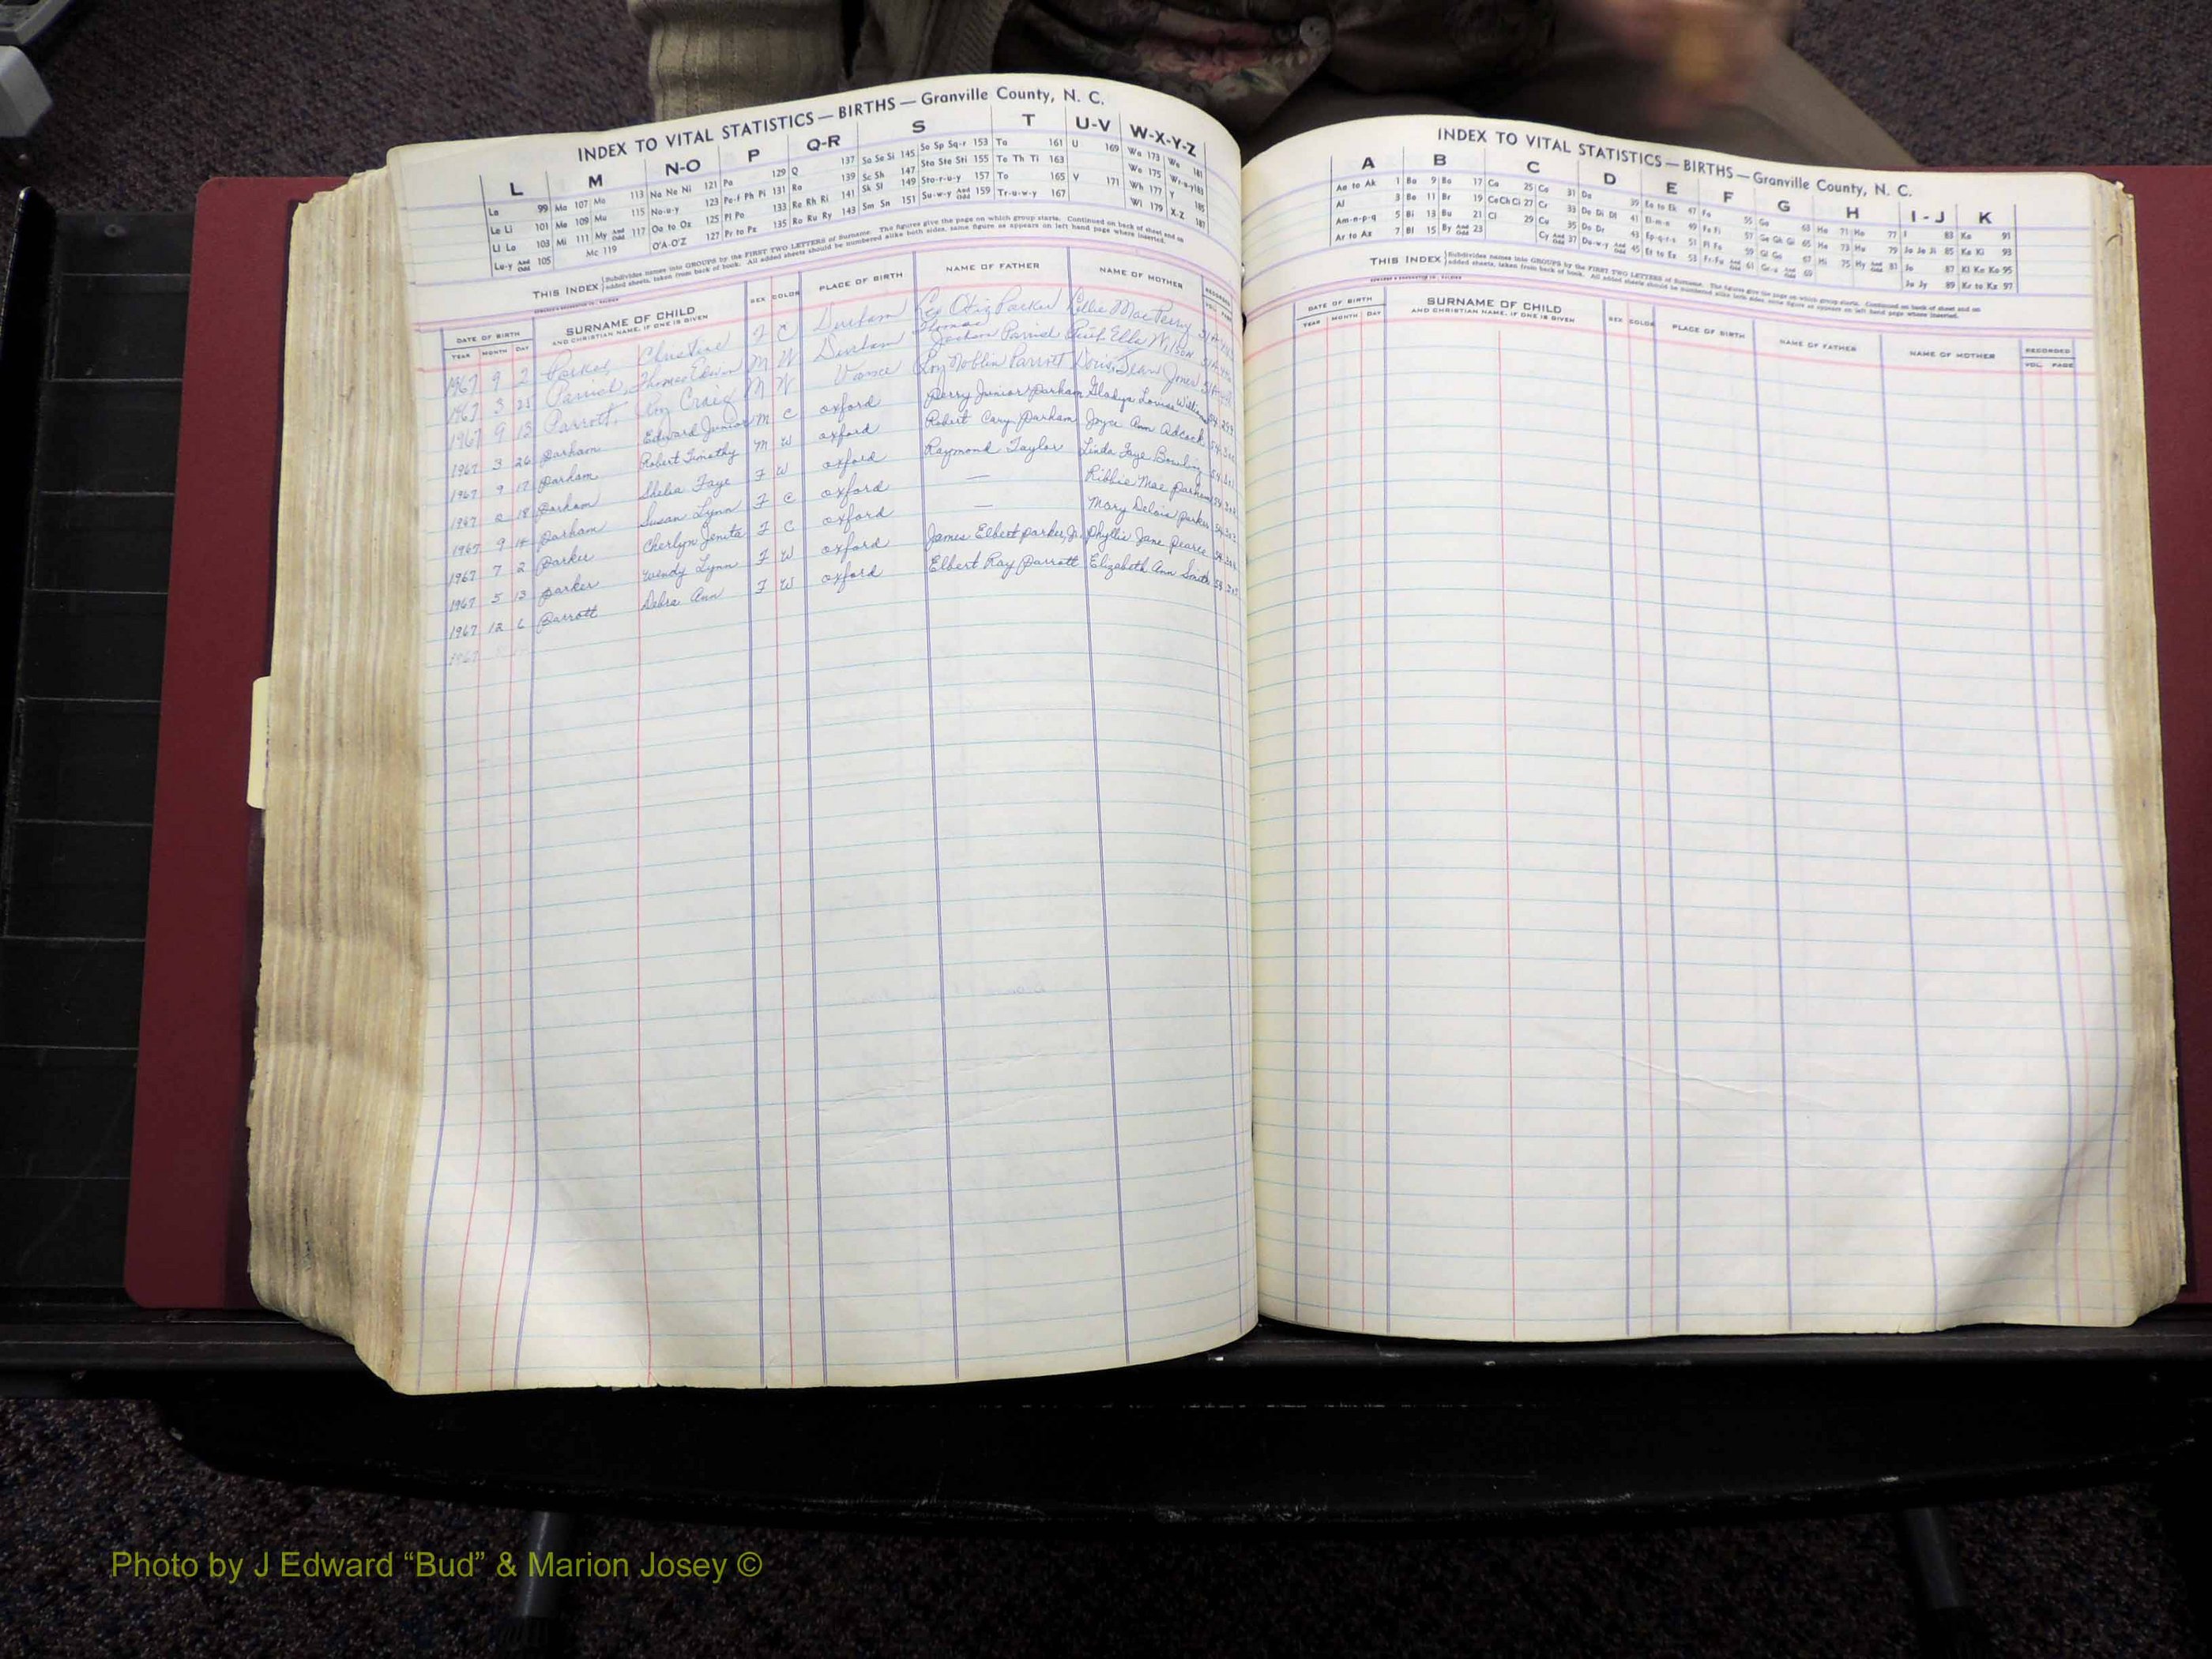 INDEX TO VITAL STATISTICS — BIRTHS — Granville County, N. C.
L M N-O P Q-R S T U-V W-X-Y-Z
La 99 Ma 107 Mo 113 Na Ne Ni 121 Pa 129 Q 137 Sa Se Si 145 So Sp Sq-r 153 Ta 161 U 169 Wa 173 Wo 181
Le Li 101 Me 109 Mu 115 No-u-y 123 Pe-f Ph Pi 131 Ra 139 Sc Sh 147 Sta Ste Sti 155 Te Th Ti 163 We 175 Wr-u-y 183
Ll Lo 103 Mi 111 My And Odd 117 Oa to Oz 125 Pl Po 133 Re Rh Ri 141 Sk Sl 149 Sto-r-u-y 157 To 165 V 171 Wh 177 Y 185
Lu-y And Odd 105 Mc 119 O'A-O'Z 127 Pr to Pz 135 Ro Ru Ry 143 Sm Sn 151 Su-w-y And Odd 159 Tr-u-w-y 167 Wi 179 X-Z 187
THIS INDEX Subdivides names into GROUPS by the FIRST TWO LETTERS of Surname. The figures give the page on which group starts. Continued on back of sheet and on
added sheets, taken from back of book. All added sheets should be numbered alike both sides, same figure as appears on left hand page where inserted.
DATE OF BIRTH SURNAME OF CHILD SEX COLOR PLACE OF BIRTH NAME OF FATHER NAME OF MOTHER RECORDED
YEAR MONTH DAY AND CHRISTIAN NAME, IF ONE IS GIVEN VOL. PAGE
1967 9 2 Parker, Christine F C Durham Otis Parker Lellie Mae Perry
1967 3 25 Parrish, Thomas Edwin M W Durham Thomas Jackson Parrish Ruth Ella Wilson
1967 9 13 Parrott, Roy Craig M W Vance Roy Noblin Parrott Louise Jean Jones
1967 3 26 Parham Edward Junior M C Oxford Perry Junior Parham Gladys Louise Williams
1967 9 17 Parham Robert Timothy M W Oxford Robert Cary Parham Joyce Ann Adcock
1967 18 Parham Shelia Faye F W Oxford Raymond Taylor Linda Faye Bowling
1967 9 14 Parham Susan Lynn F C Oxford — Ribbie Mae Parham
1967 7 2 Parker Cherlyn Jenita F C Oxford — Mary Delois Parker
1967 5 13 Parker Wendy Lynn F W Oxford James Elbert Parker, Jr. Phyllis Jane Pearce
1967 12 6 Parrott Debra Ann F W Oxford Elbert Ray Parrott Elizabeth Ann Smith
1967
INDEX TO VITAL STATISTICS — BIRTHS — Granville County, N. C.
A B C D E F G H I - J K
Aa to Ak 1 Ba 9 Bo 17 Ca 25 Co 31 Da 39 Ea to Ek 47 Fa 55 Ga 63 Ha 71 Ho 77 I 83 Ka 91
Al 3 Be 11 Br 19 Ce Ch Ci 27 Cr 33 De Di Dl 41 El-m-n 49 Fe Fi 57 Ge Gh Gi 65 He 73 Hu 79 Ja Je Ji 85 Ke Ki 93
Am-n-p-q 5 Bi 13 Bu 21 Cl 29 Cu 35 Do Dr 43 Ep-q-r-s 51 Fl Fo 59 Gl Go 67 Hi 75 Hy And Odd 81 Jo 87 Kl Kn Ko 95
Ar to Az 7 Bl 15 By And Odd 23 Cy And Odd 37 Du-w-y And Odd 45 Et to Ez 53 Fr-Fu And Odd 61 Gr-u And Odd 69 Ju Jy 89 Kr to Kz 97
THIS INDEX Subdivides names into GROUPS by the FIRST TWO LETTERS of Surname. The figures give the page on which group starts. Continued on back of sheet and on
added sheets, taken from back of book. All added sheets should be numbered alike both sides, same figure as appears on left hand page where inserted.
DATE OF BIRTH SURNAME OF CHILD SEX COLOR PLACE OF BIRTH NAME OF FATHER NAME OF MOTHER RECORDED
YEAR MONTH DAY AND CHRISTIAN NAME, IF ONE IS GIVEN VOL. PAGE
Photo by J Edward “Bud” & Marion Josey ©